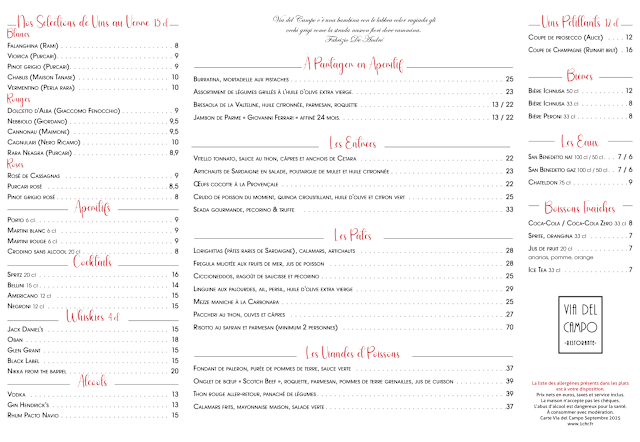 Nos Sélections de Vins au Verre 15 cl
Blancs
Falanghina (Rami) 8
Viorica (Purcari) 9
Pinot grigio (Purcari) 9
Chablis (Maison Tanase) 10
Vermentino (Perla rara) 10
Rouges
Dolcetto d'Alba (Giaccomo Fenocchio) 9
Nebbiolo (Giordano) 9,5
Cannonau (Maimone) 9,5
Cagnulari (Nero Ricamo) 10
Rara Neagra (Purcari) 8,9
Rosés
Rosé de Cassagnas 9
Purcari rosé 8,5
Pinot grigio rosé 8
Aperitifs
Porto 6 cl 9
Martini blanc 6 cl 9
Martini rouge 6 cl 9
Crodino sans alcool 20 cl 8
Cocktails
Spritz 20 cl 16
Bellini 15 cl 14
Americano 12 cl 15
Negroni 12 cl 15
Whiskies 4 cl
Jack Daniel's 15
Oban 18
Glen Grant 15
Black Label 15
Nikka from the barrel 20
Alcools
Vodka 13
Gin Hendrick's 13
Rhum Pacto Navio 15
Via del Campo c'è una bambina con le labbra color rugiada gli
occhi grigi come la strada nascon fiori dove cammina.
Fabrizio De André
A Partager en Aperitif
Burratina, mortadelle aux pistaches 25
Assortiment de légumes grillés à l'huile d'olive extra vierge 23
Bresaola de la Valteline, huile citronnée, parmesan, roquette 13 / 22
Jambon de Parme « Giovanni Ferrari » affiné 24 mois 13 / 22
Les Entrées
Vitello tonnato, sauce au thon, câpres et anchois de Cetara 22
Artichauts de Sardaigne en salade, poutargue de mulet et huile citronnée 23
Œufs cocotte à la Provençale 22
Crudo de poisson du moment, quinoa croustillant, huile d'olive et citron vert 25
Seada gourmande, pecorino & truffe 33
Les Pâtes
Lorighittas (pâtes rares de Sardaigne), calamars, artichauts 28
Fregula mijotée aux fruits de mer, jus de poisson 28
Ciccioneddos, ragoût de saucisse et pecorino 25
Linguine aux palourdes, ail, persil, huile d'olive extra vierge 29
Mezze maniche à la Carbonara 25
Paccheri au thon, olives et câpres 27
Risotto au safran et parmesan (minimum 2 personnes) 70
Les Viandes et Poissons
Fondant de paleron, purée de pommes de terre, sauce verte 37
Onglet de bœuf « Scotch Beef », roquette, parmesan, pommes de terre grenailles, jus de cuisson 39
Thon rouge aller-retour, panaché de légumes 39
Calamars frits, mayonnaise maison, salade verte 37
Vins Pétillants 12 cl
Coupe de prosecco (Alice) 12
Coupe de Champagne (Ruinart brut) 16
Bières
Bière Ichnusa 50 cl 12
Bière Ichnusa 33 cl 8
Bière Peroni 33 cl 8
Les Eaux
San Benedetto nat 100 cl / 50 cl 7 / 6
San Benedetto gaz 100 cl / 50 cl 7 / 6
Chateldon 75 cl 9
Boissons Fraiches
Coca-Cola / Coca-Cola Zero 33 cl 8
Sprite, orangina 33 cl 7
Jus de fruit 20 cl 7
ananas, pomme, orange
Ice Tea 33 cl 7
VIA DEL
CAMPO
•RISTORANTE•
La liste des allergènes présents dans les plats
est à votre disposition.
Prix nets en euros, taxes et service inclus.
La maison n'accepte pas les chèques.
L'abus d'alcool est dangereux pour la santé.
À consommer avec modération.
Carte Via del Campo Septembre 2025